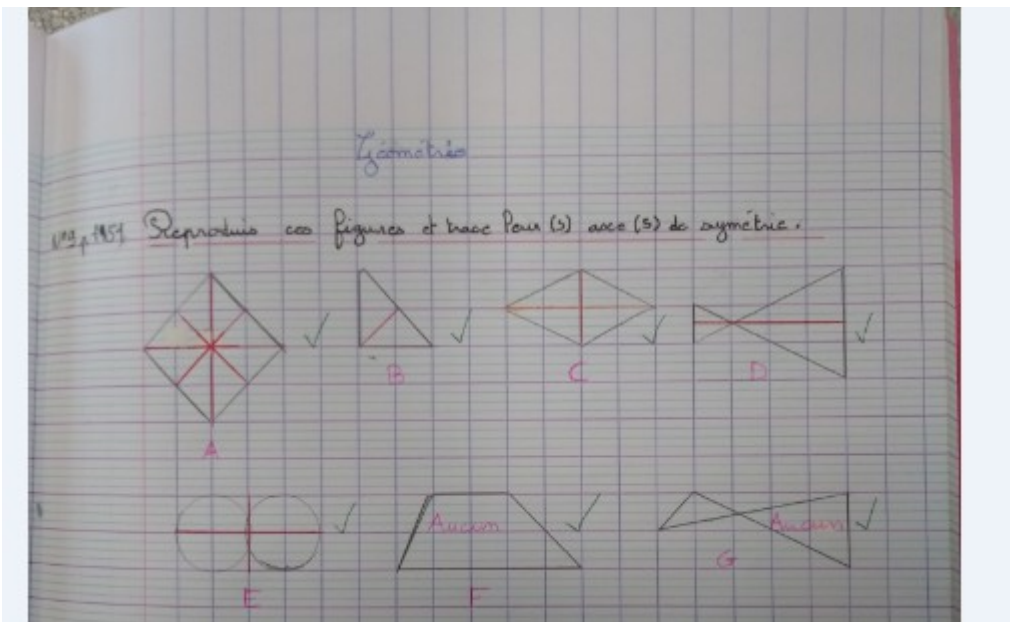 Géométrie
Reproduis ces figures et trace leur (s) axe (s) de symétrie.
B
C
D
A
Aucun
Aucun
G
E
F